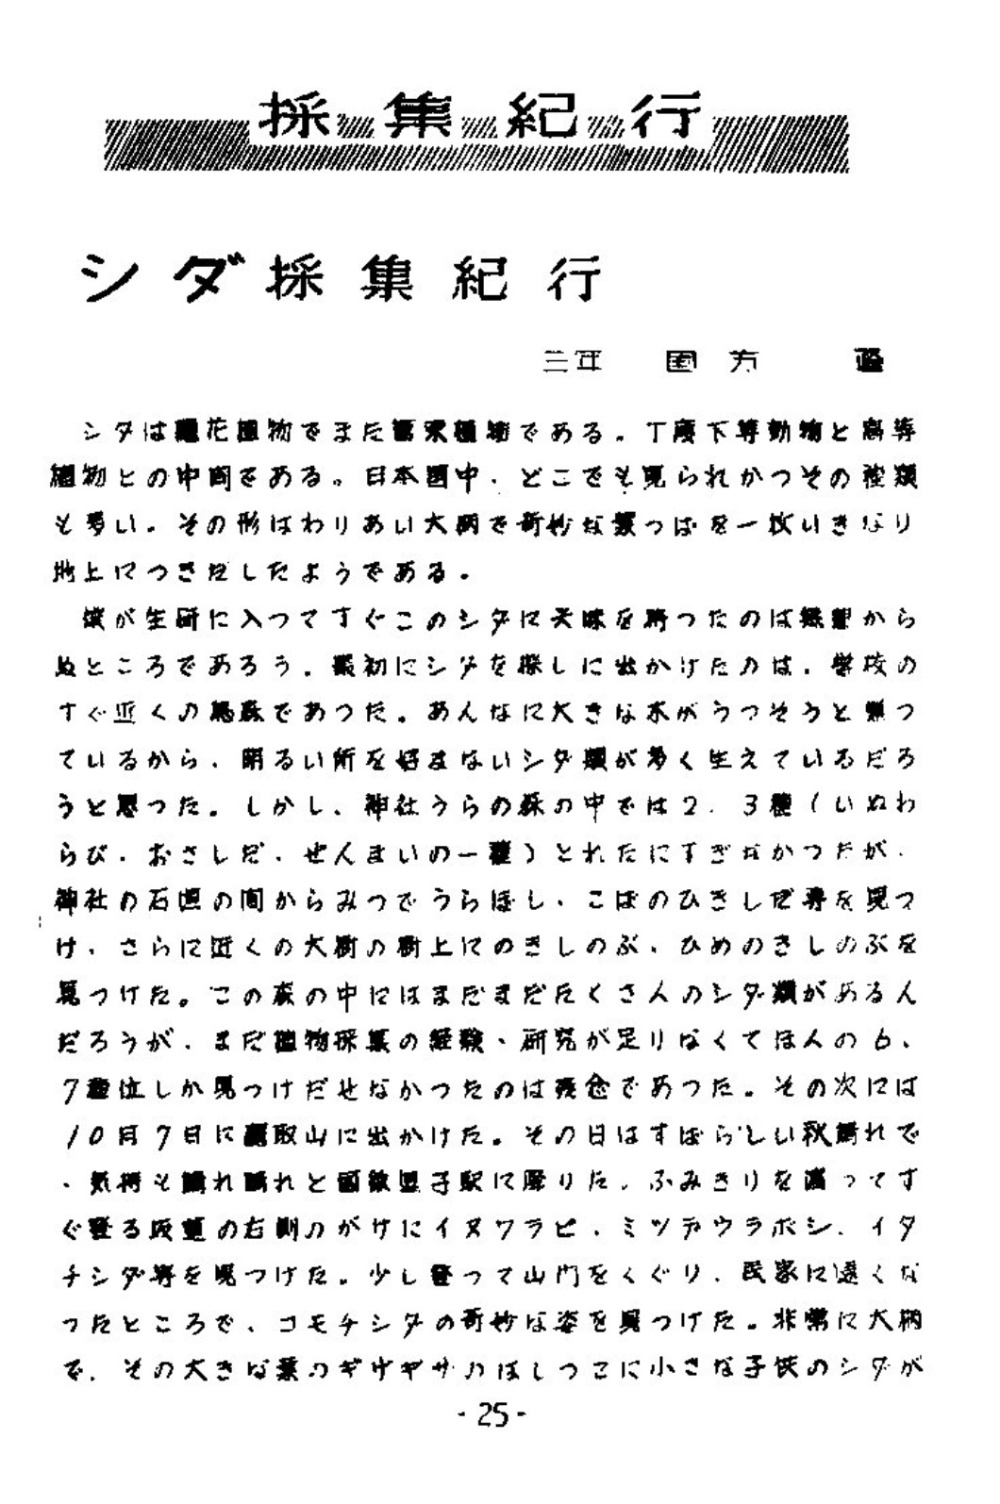 採集紀行
シダ採集紀行
三年 国方
シダは花植物でまた植物である。丁度下等動物と高等
植物との中間である。日本国中、どこでも見られかつその種類
も多い。その形はわりあい大柄で奇妙な葉つぱを一枚いきなり
地上につきだしたようである。
僕が生研に入つてすぐこのシダに興味を持つたのは無理から
ぬところであろう。最初にシダを探しに出かけたのは、学校の
すぐ近くの森であつた。あんなに大きな木がうつそうと繁つ
ているから、明るい所を好まないシダ類が多く生えているだろ
うと思つた。しかし、神社うらの森の中では2、3種(いぬわ
らび、おさしだ、ぜんまいの一種)とれたにすぎなかつたが、
神社の石垣の間からみつでうらぼし、こばのひきしだ等を見つ
け、さらに近くの大樹の樹上にのきしのぶ、ひめのきしのぶを
見つけた。この森の中にはまだまだたくさんのシダ類があるん
だろうが、まだ植物採集の経験、研究が足りなくてほんの6、
7種位しか見つけだせなかつたのは残念であつた。その次には
10月7日に鷹取山に出かけた。その日はすばらしい秋晴れで
、気持も晴れ晴れと逗子駅に降りた。ふみきりを渡ってす
ぐ登る坂道の右側のがけにイヌワラビ、ミツデウラボシ、イタ
チシダ等を見つけた。少し登って山門をくぐり、民家に遠くな
つたところで、コモチシダの奇妙な姿を見つけた。非常に大柄
で、その大きな葉のギザギザのはしつこに小さな子供のシダが
-25-